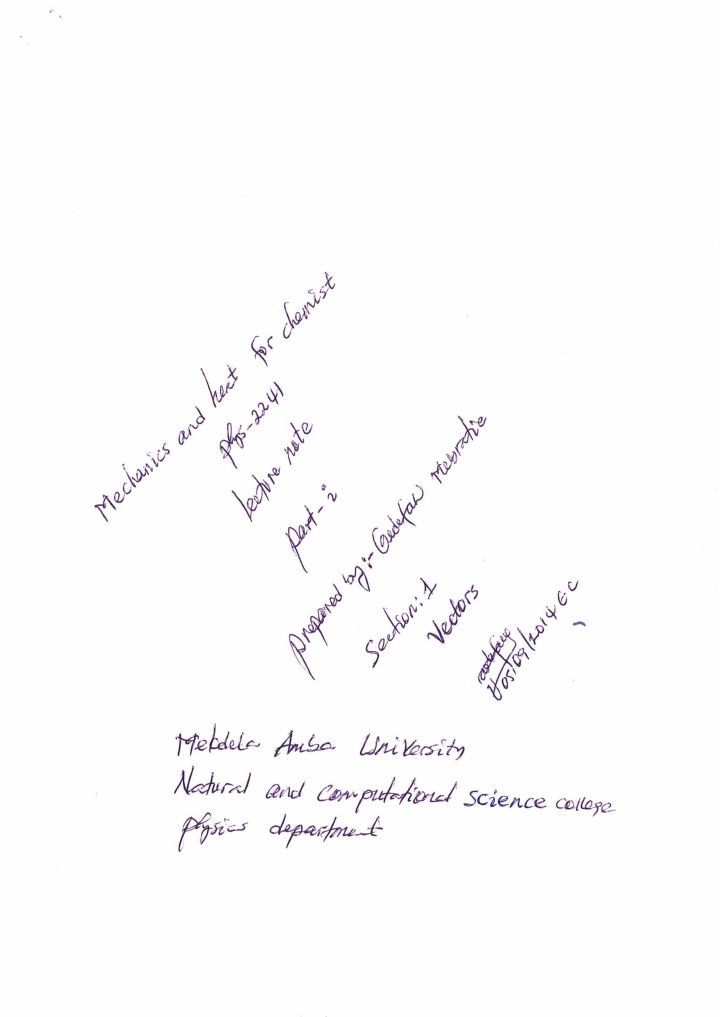 Mechanics and heat for chemist
phys-2241
lecture note
part-i
prepared by:- Gudefaw Mebratie
Section: 1
Vectors
05/09/2014 E C
Mekdela Amba University
Natural and computational science college
physics department